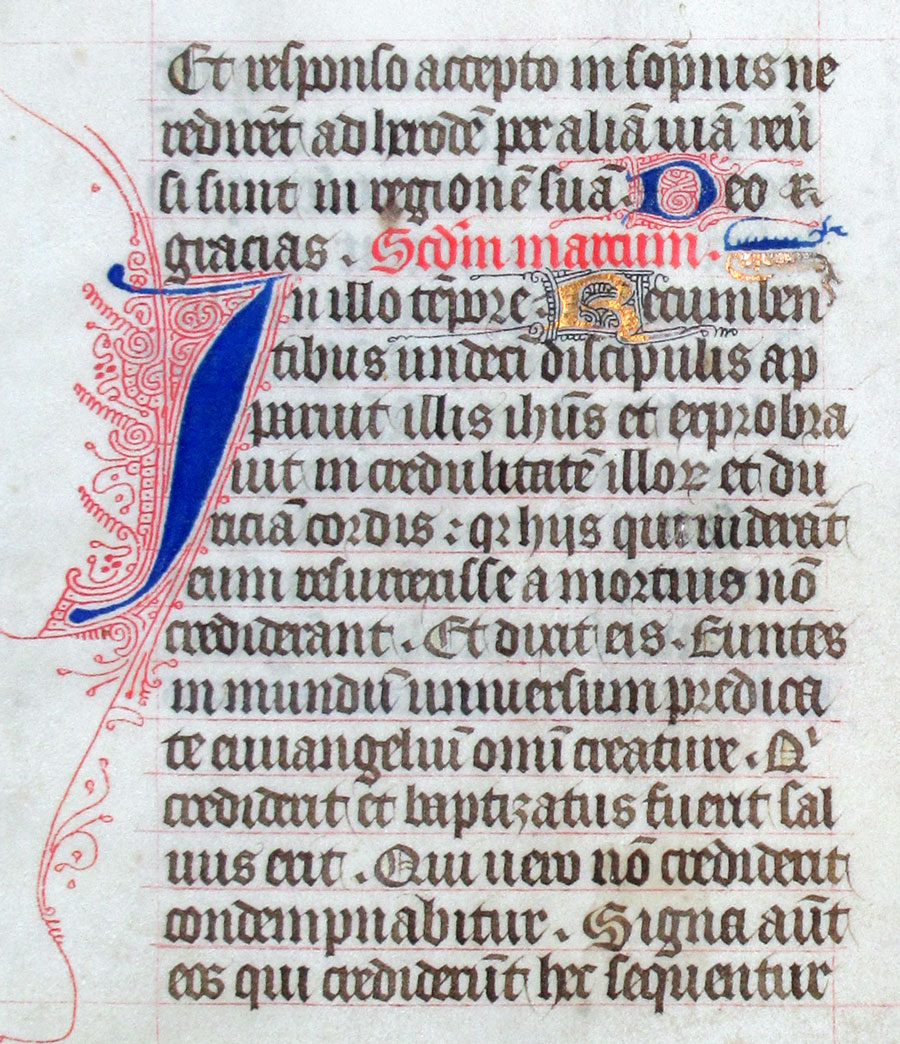 Et responso accepto in sōpnius ne
redirēt ad herodē per aliā uiā reu̅
si sunt in regionē suā. Deo
gracias. Scdm̄ marcum.
In illo tēpore. Recumben
tibus undeci discipulis ap
paruit illis ihūs et exprobra
uit in credulitatē illoꝝ et du
riciā cordis: qr hijs qui uiderāt
eum resurrexisse a mortuis nō
crediderant. Et dixit eis. Euntes
in mundū uniuersum predica
te euuangeliū omī creature. Qi
crediderit et baptizatus fuerit sal
uus erit. Qui uero nō crediderit
condempnabitur. Signa aūt
eos qui crediderūt hec sequentur